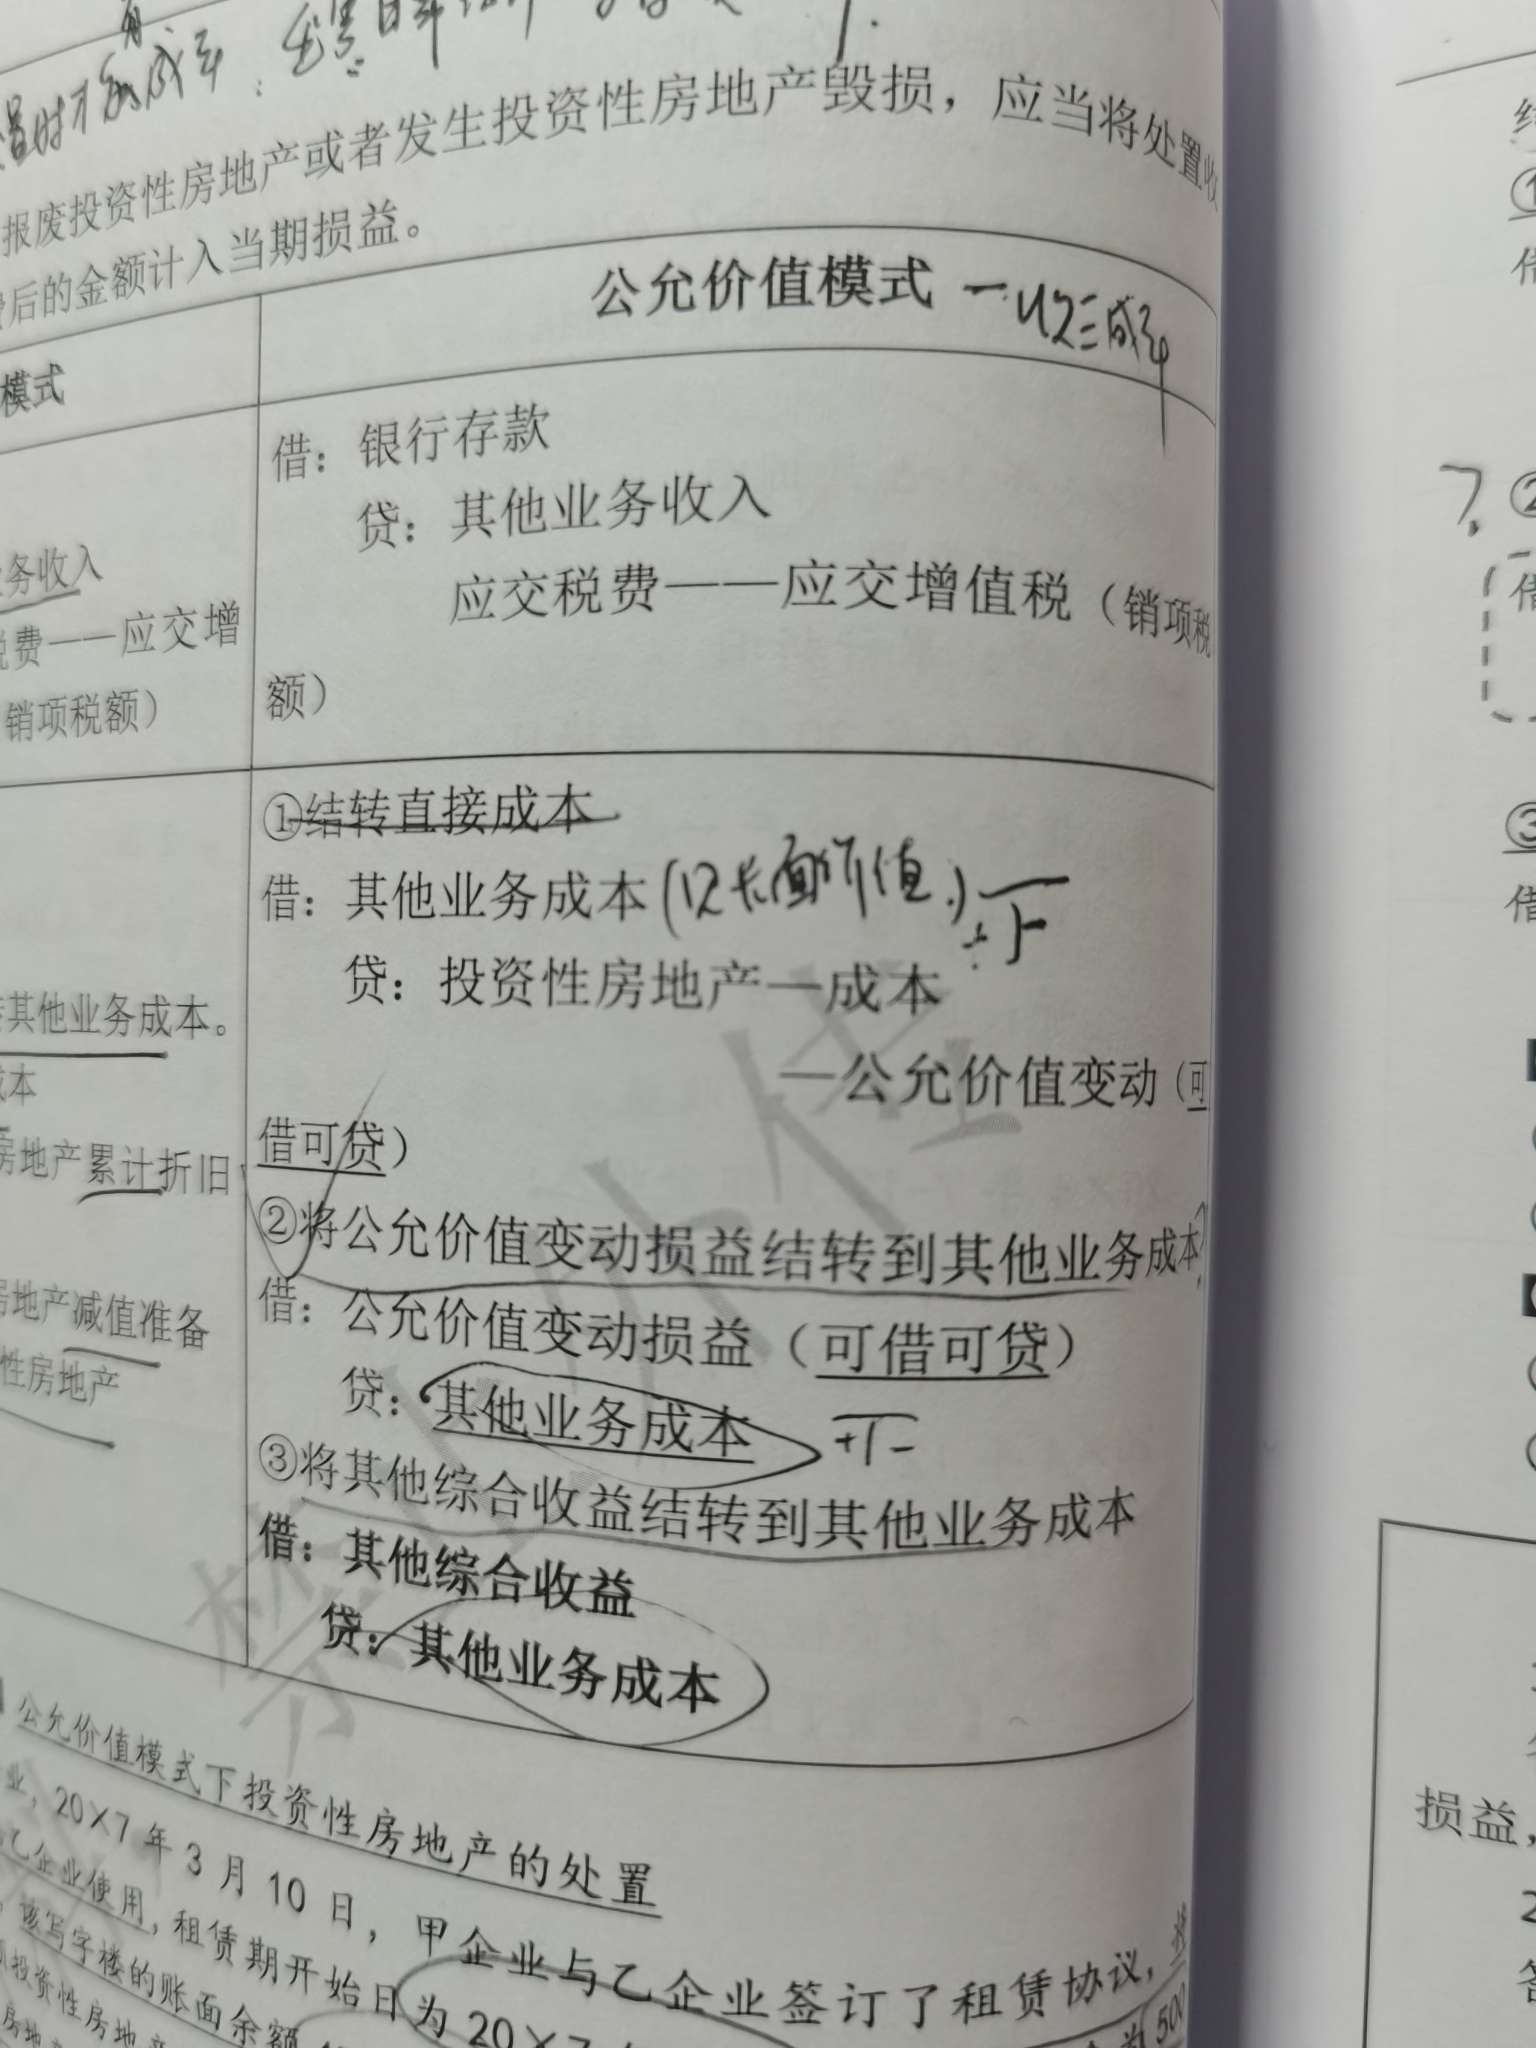 报废投资性房地产或者发生投资性房地产毁损，应当将处置收
后的金额计入当期损益。
模式
公允价值模式 一收三成本
务收入
税费——应交增
销项税额）
借：银行存款
贷：其他业务收入
应交税费——应交增值税（销项税
额）
其他业务成本。
成本
房地产累计折旧
房地产减值准备
性房地产
①结转直接成本
借：其他业务成本（账面价值）
贷：投资性房地产—成本
—公允价值变动（可
借可贷）
②将公允价值变动损益结转到其他业务成本
借：公允价值变动损益（可借可贷）
贷：其他业务成本
③将其他综合收益结转到其他业务成本
借：其他综合收益
贷：其他业务成本
公允价值模式下投资性房地产的处置
业，20×7年3月10日，甲企业与乙企业签订了租赁协议，将
乙企业使用，租赁期开始日为20×7
该写字楼的账面余额
为500
投资性房地产
房地
①
借
②
借
③
借
损益，